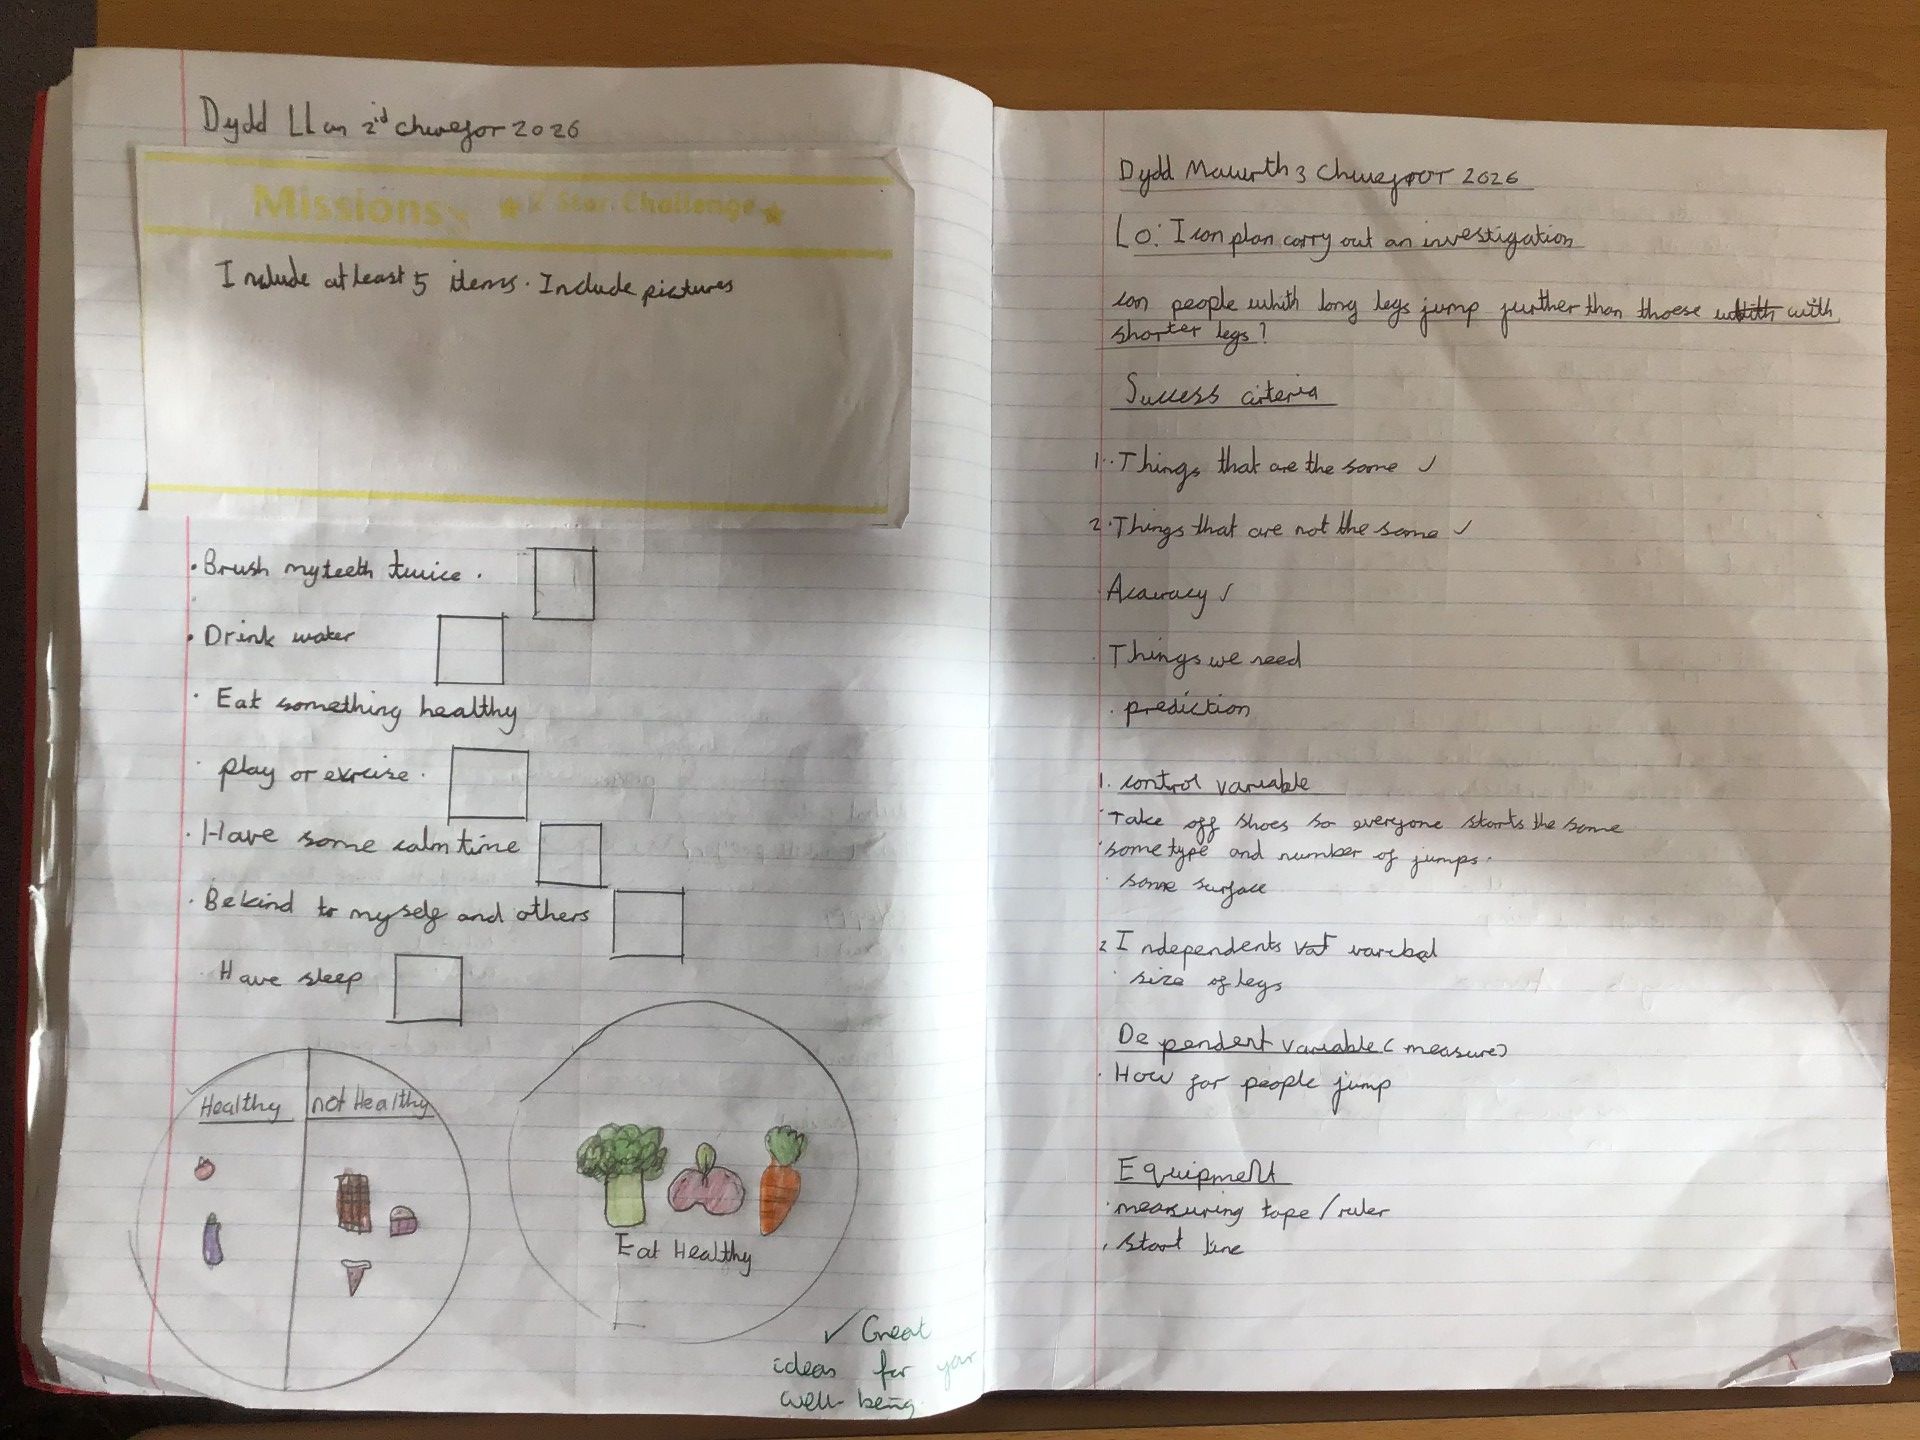 Dydd Llun 2nd Chwefor 2026
Missions
2 Star Challenge
Include at least 5 items. Include pictures
• Brush my teeth twice.
• Drink water
• Eat something healthy
• play or exrcise.
• Have some calm time
• Be kind to myself and others
• Have sleep
Healthy
not Healthy
Eat Healthy
✓ Great
ideas for your
well-being.
Dydd Mawrth 3 Chwefror 2026
Lo: I can plan carry out an investigation
can people whith long legs jump further than thoese with
shorter legs?
Success criteria
1. Things that are the same ✓
2. Things that are not the same ✓
• Accuracy ✓
• Things we need
• prediction
1. control variable
• Take off shoes so everyone starts the same
• same type and number of jumps.
• same surface
2 Independents vat varebal
• size of legs
Dependent variable (measure)
• How far people jump
Equipment
• measuring tape/ruler
• start line